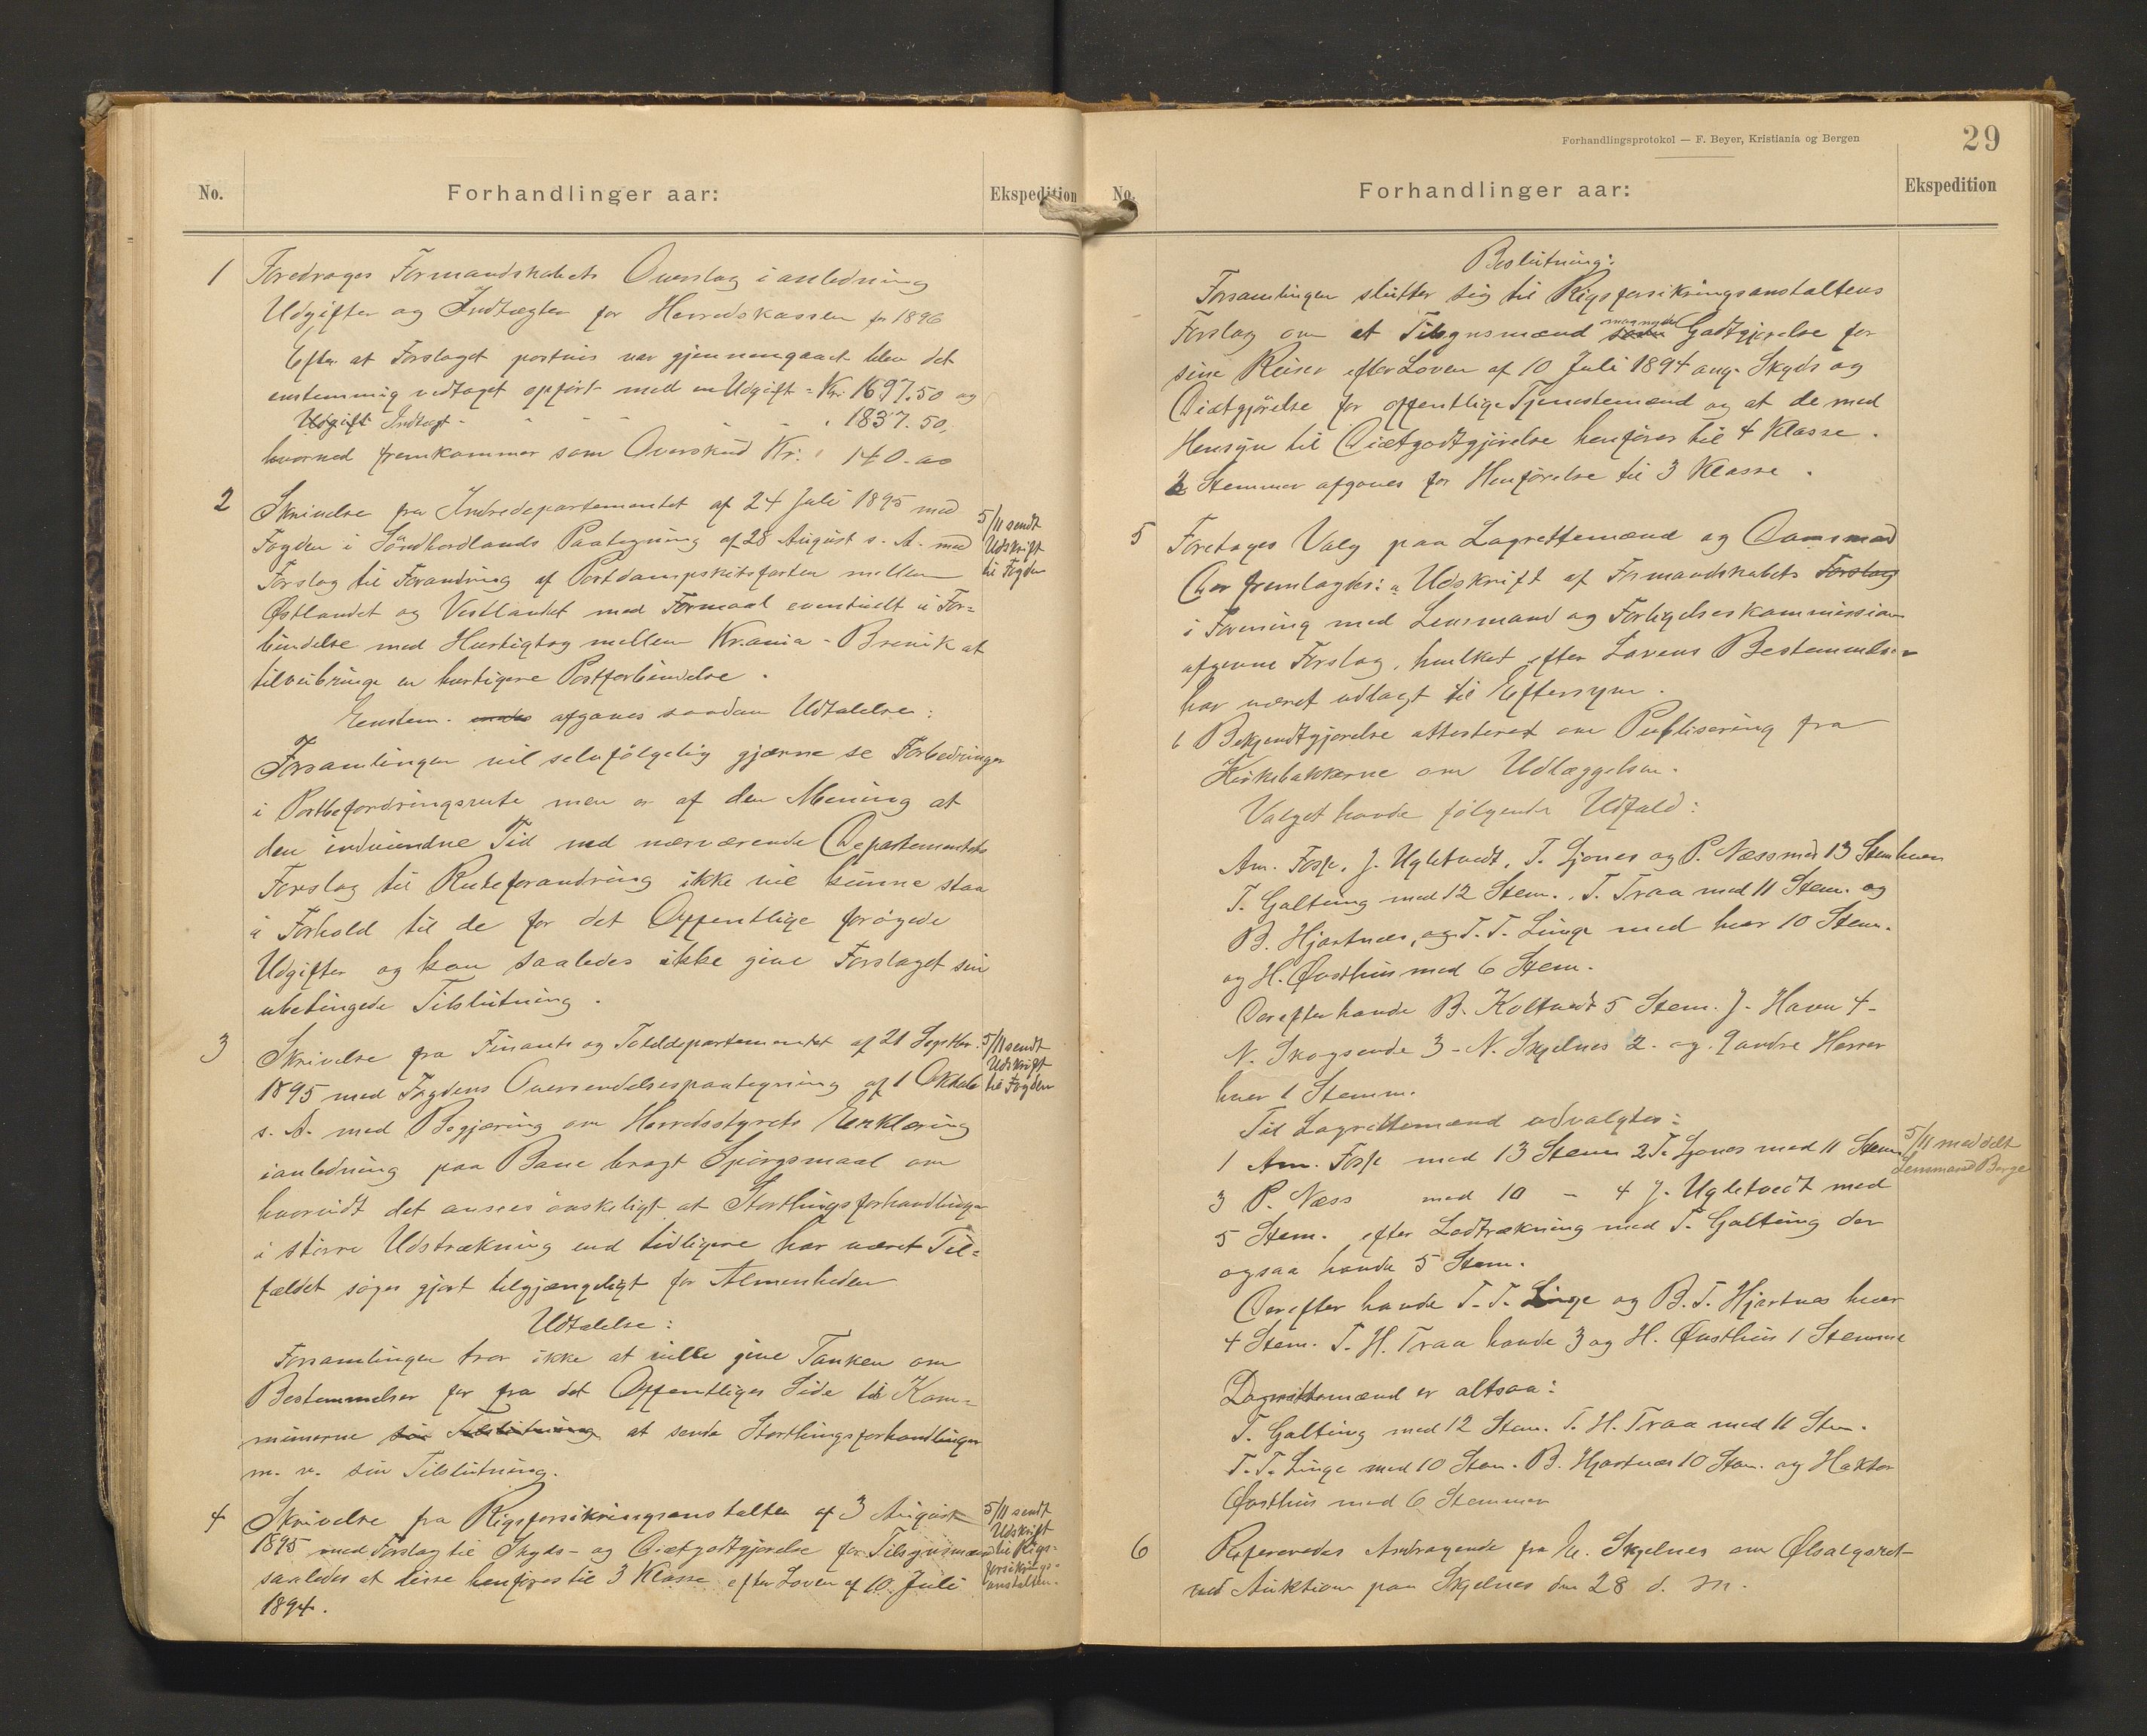 No.
Forhandlinger aar:
Ekspedition
1 Foredrages Formandskabets Overslag i anledning
Udgifter og Indtægter for Herredskassen for 1896
Efter at Forslaget postvis var gjennemgaaet blev det
enstemmig vedtaget opført med en Udgift = Kr. 1697.50 og
Udgift Indtægt - - - - - 1837.50,
hvorved fremkommer som Overskud Kr. 140.00
2 Skrivelse fra Indredepartementet af 24 Juli 1895 med
Fogden i Söndhordlands Paategning af 28 August s. A. med
Forslag til Forandring af Postdampskibsfarten mellem
Østlandet og Vestlandet med Formaal eventuelt i For=
bindelse med Hurtigtog mellem Kr.ania - Brevik at
tilveibringe en hurtigere Postforbindelse.
5/11 sendt
Udskrift
til Fogden
Enstem. afgaves saadan Udtalelse:
Forsamlingen vil selvfølgelig gjærne se Forbedringer
i Postbefordringsrute men er af den Mening at
den indvundne Tid ved nærværende Departementets
Forslag til Ruteforandring ikke vil kunne staa
i Forhold til de for det Offentlige forøgede
Udgifter og kan saaledes ikke give Forslaget sin
ubetingede Tilslutning.
3 Skrivelse fra Finants og Tolddepartementet af 21 Septbr.
1895 med Fogdens Oversendelsespaategning af 1 Oktober
s. A. med Begjæring om Herredsstyrets Erklæring
ianledning paa Bane bragt Spørgsmaal om
hvorvidt det ansees ønskeligt at Storthingsforhandlinger
i større Udstrækning end tidligere har været Til=
fældet søges gjort tilgjængeligt for Almenheden
5/11 sendt
Udskrift
til Fogden
Udtalelse:
Forsamlingen tror ikke at ville give Tanken om
Bestemmelser for fra det Offentliges Side til Kom=
munerne sin Tilslutning at sende Storthingsforhandlinger
m. v. sin Tilslutning.
4 Skrivelse fra Rigsforsikringsanstalten af 3 August
1895 med Forslag til Skyds- og Diætgodtgjørelse for Tilsynsmænd
saaledes at disse henføres til 3 Klasse efter Loven af 10. Juli
1894.
5/11 sendt
Udskrift
til Rigs-
forsikrings-
anstalten.
Forhandlingsprotokol — F. Beyer, Kristiania og Bergen
29
No.
Forhandlinger aar:
Ekspedition
Beslutning:
Forsamlingen slutter sig til Rigsforsikringsanstaltens
Forslag om at Tilsynsmænd Godtgjørelse for
sine Reiser efter Loven af 10 Juli 1894 ang. Skyds og
Diætgjörelse for offentlige Tjenestemænd og at de med
Hensyn til Diætgodtgjörelse henføres til 4 Klasse.
Stemmer afgaves for Henførelse til 3 Klasse.
5 Foretages Valg paa Lagrettemænd og Domsmænd
Der fremlagdes: a Udskrift af Formandskabets Forslag
i Forening med Lensmand og Forligelseskommission
afgivne Forslag, hvilket efter Lovens Bestemmelser
har været udlagt til Eftersyn.
b Bekjendtgjørelse attesteret om Publisering fra
Kirkebakkerne om Udlæggelsen.
Valget havde følgende Udfald:
Am. Fosse, J. Ugletvedt, T. Ljones og P. Næss med 13 Stemmer
T. Galtung med 12 Stem., T. Traa med 11 Stem. og
B. Hjartnæs, og T. T. Linge med hver 10 Stem.
og H. Øvsthus med 6 Stem.
Derefter havde B. Koltvedt 5 Stem. J. Haven 4 -
N. Skogseide 3 - N. Skjelnes 2 - og 9 andre Herrer
hver 1 Stemm.
Til Lagrettemænd udvalgtes:
1 Am. Fosse med 13 Stem 2 T. Ljones med 11 Stem
3 P. Næss med 10 - 4 J. Ugletvedt med
5 Stem. efter Lodtrækning med T. Galtung der
ogsaa havde 5 Stem.
5/11 meddelt
Lensmand Berge
Derefter havde T. T. Linge og B. T. Hjartnæs hver
4 Stem. T. H. Traa havde 3 og H. Øvsthus 1 Stemme
Domsmænd er altsaa:
T. Galtung med 12 Stem. T. H. Traa med 11 Stem.
T. T. Linge med 10 Stem. B. Hjartnæs 10 Stem. og Haktor
Øvsthus med 6 Stemmer
6 Refereredes Andragende fra N. Skjelnes om Ølsalgsret
ved Auktion paa Skjelnes den 28 d. M.